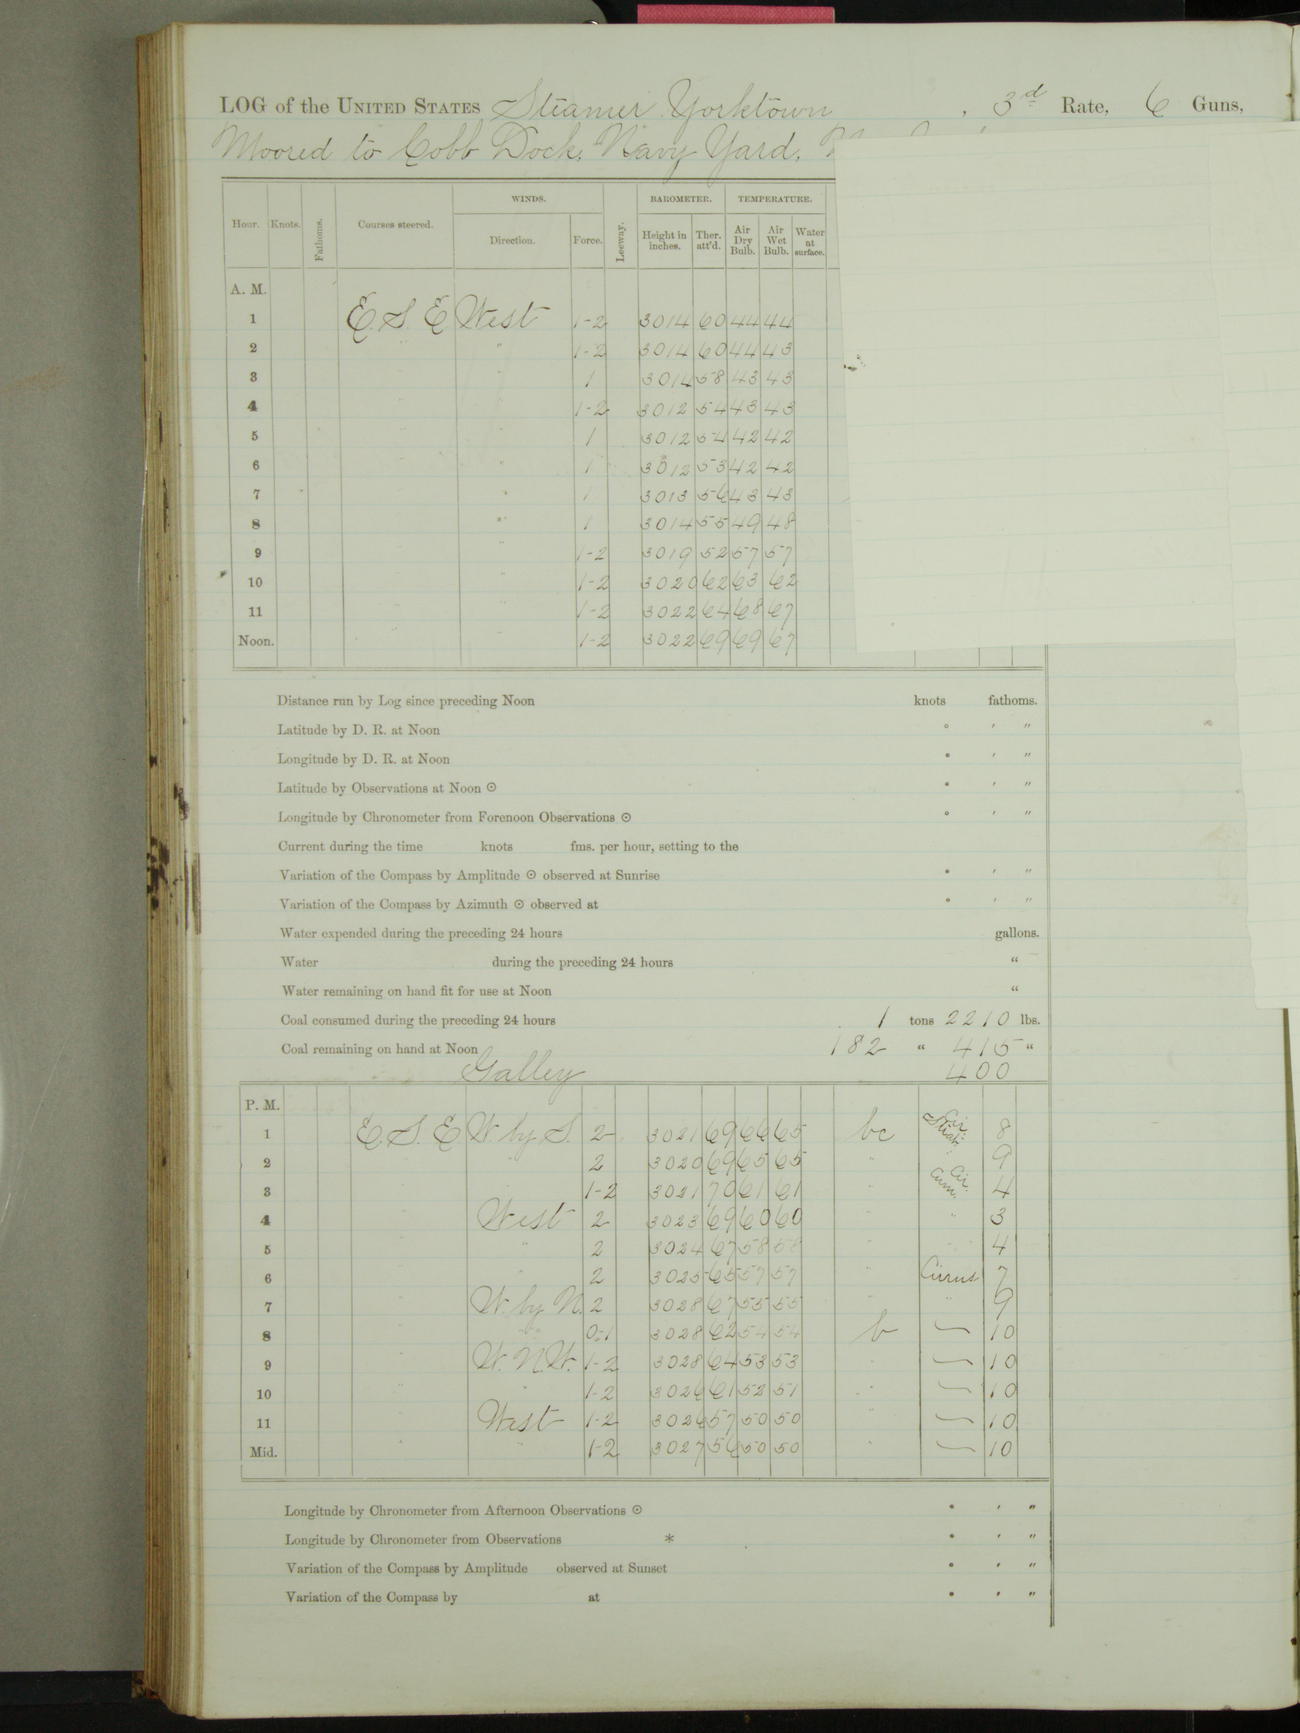 LOG of the UNITED STATES Steamer Yorktown , 3d Rate, 6 Guns,
Moored to Cobb Dock, Navy Yard,
WINDS. BAROMETER. TEMPERATURE.
Hour. Knots. Fathoms. Courses steered. Direction. Force. Leeway. Height in inches. Ther. att'd. Air Dry Bulb. Air Wet Bulb. Water at surface.
A. M.
1 E. S. E West 1-2 3014 60 44 44
2 " " 1-2 3014 60 44 43
3 " " 1 3014 58 43 43
4 " " 1-2 3012 54 43 43
5 " " 1 3012 54 42 42
6 " " 1 3012 53 42 42
7 " " 1 3013 56 43 43
8 " " 1 3014 55 49 48
9 " " 1-2 3019 52 57 57
10 " " 1-2 3020 62 63 62
11 " " 1-2 3022 64 68 67
Noon. " " 1-2 3022 69 69 67
Distance run by Log since preceding Noon knots fathoms.
Latitude by D. R. at Noon ° ′ ″
Longitude by D. R. at Noon ° ′ ″
Latitude by Observations at Noon ⊙ ° ′ ″
Longitude by Chronometer from Forenoon Observations ⊙ ° ′ ″
Current during the time knots fms. per hour, setting to the
Variation of the Compass by Amplitude ⊙ observed at Sunrise ° ′ ″
Variation of the Compass by Azimuth ⊙ observed at ° ′ ″
Water expended during the preceding 24 hours gallons.
Water during the preceding 24 hours “
Water remaining on hand fit for use at Noon “
Coal consumed during the preceding 24 hours 1 tons 2210 lbs.
Coal remaining on hand at Noon 182 “ 415 “
Galley 400
P. M.
1 E. S. E W. by S. 2 3021 69 66 65 bc Cir. Strat. 8
2 " " 2 3020 69 65 65 " " 9
3 " " 1-2 3021 70 61 61 " Cir. Cum. 4
4 " West 2 3023 69 60 60 " " 3
5 " " 2 3024 67 58 58 " " 4
6 " " 2 3025 65 57 57 " Cirrus 7
7 " W. by N. 2 3028 67 55 55 " " 9
8 " " 0-1 3028 62 54 54 b — 10
9 " W. N. W. 1-2 3028 64 53 53 " — 10
10 " " 1-2 3026 61 52 51 " — 10
11 " West 1-2 3026 57 50 50 " — 10
Mid. " " 1-2 3027 56 50 50 " — 10
Longitude by Chronometer from Afternoon Observations ⊙ ° ′ ″
Longitude by Chronometer from Observations * ° ′ ″
Variation of the Compass by Amplitude observed at Sunset ° ′ ″
Variation of the Compass by at ° ′ ″